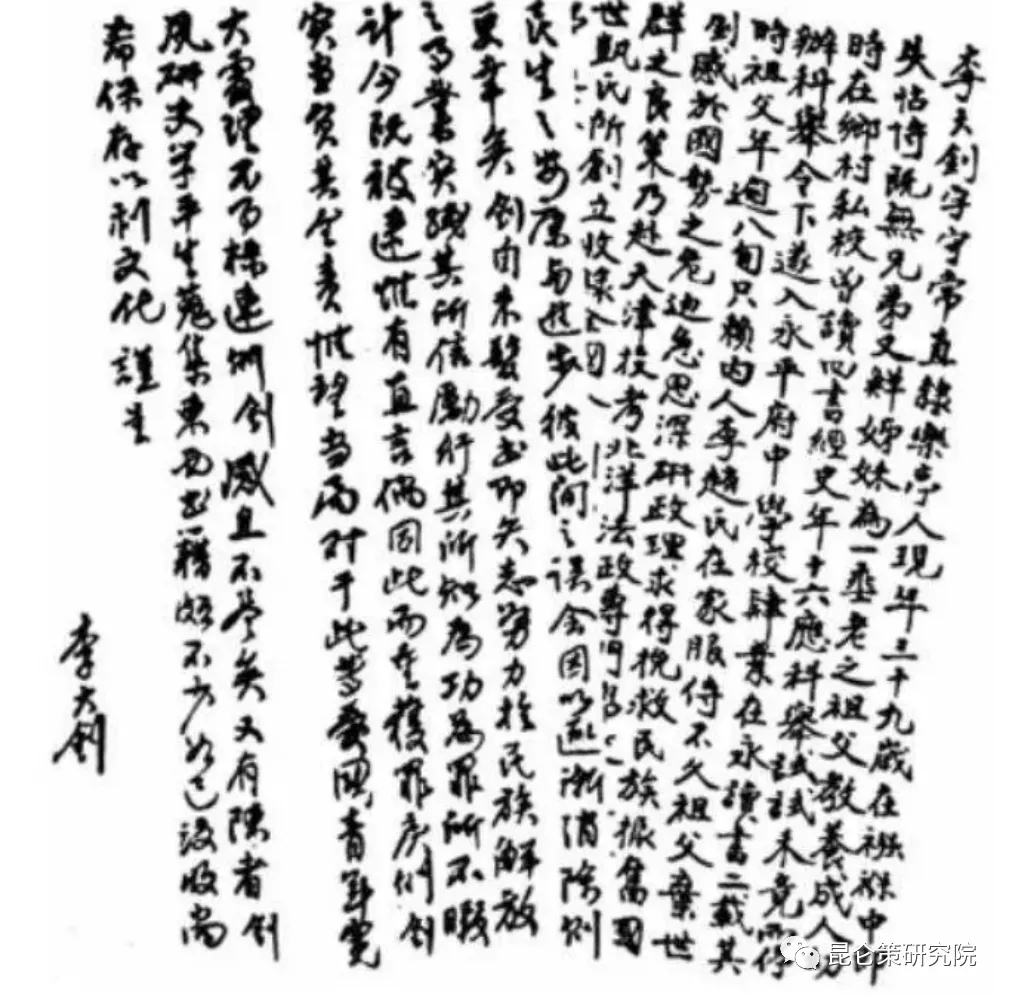 李大釗字守常直隸樂亭人現年三十九歲在襁褓中即
失怙恃既無兄弟又鮮姊妹為一垂老之祖父教養成人幼
時在鄉村私校曾讀四書經史年十六應科舉試試未竟而停
辦科舉令下遂入永平府中學校肄業在永讀書二載其
時祖父年逾八旬只賴內人李趙氏在家服侍不久祖父棄世
釗感於國勢之危迫急思深研政理求得挽救民族振奮國
群之良策乃赴天津投考北洋法政專門
世凱氏所創立收錄
民生之安康與進步彼此間之誤會因以逐漸消除則
更幸矣釗自束髮受書即矢志努力於民族解放
之事業實踐其所信勵行其所知為功為罪所不暇
計今既被逮惟有直言倘因此而重獲罪戾則釗
實當負其全責惟望當局對于此等愛國青年寬
大處理不事株連則釗感且不盡矣又有陳者釗
夙研史學平生蒐集東西書籍頗不少如已沒收尚
希保存以利文化謹呈
李大釗
昆仑策研究院